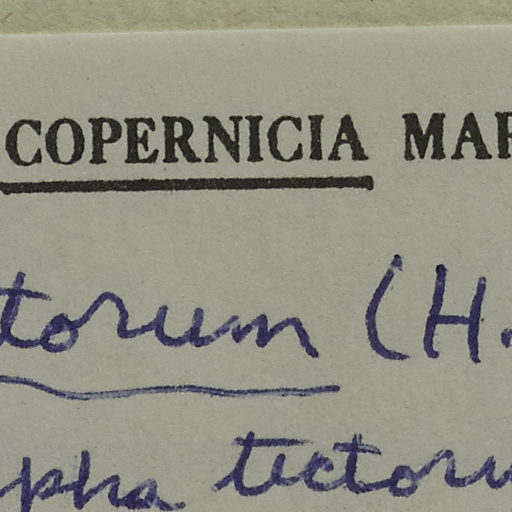 COPERNICIA MAR
torum (H.
pha tectoru